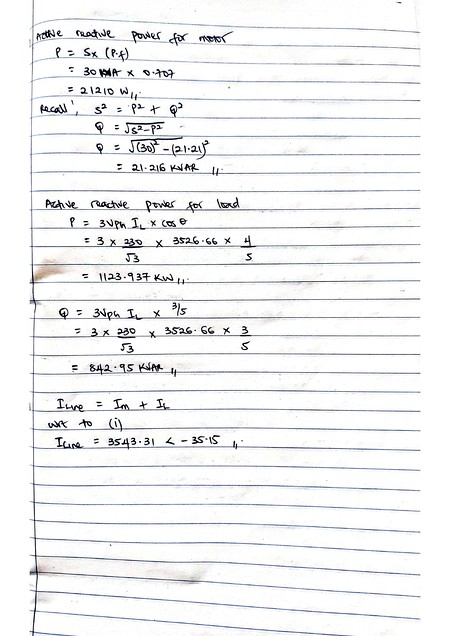 Active reactive power for motor
P = Sx (P.f)
= 30 KVA x 0.707
= 21210 W,,
Recall', S² = P² + Q²
Q = √S²-P²
Q = √(30)² - (21.21)²
= 21.216 KVAR ,,
Active reactive power for load
P = 3Vph IL x cos θ
= 3 x 230/√3 x 3526.66 x 4/5
= 1123.937 KW,,
Q = 3Vph IL x 3/5
= 3 x 230/√3 x 3526.66 x 3/5
= 842.95 KVAR ,,
ILine = Im + IL
wrt to (i)
ILine = 3543.31 < -35.15 ,,